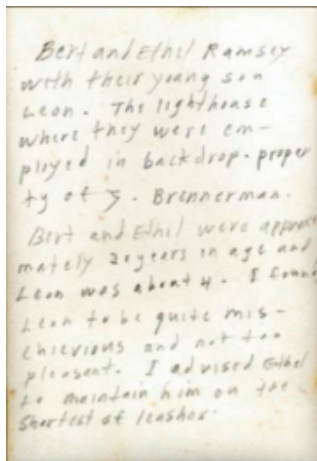 Bert and Ethel Ramsey
with their young son
Leon. The lighthouse
where they were em-
ployed in backdrop. proper
ty of S. Brennerman.
Bert and Ethel were approxi
mately 20 years in age and
Leon was about 4. I found
Leon to be quite mis-
chievious and not too
pleasent. I advised Ethel
to maintain him on the
shortest of leashes.